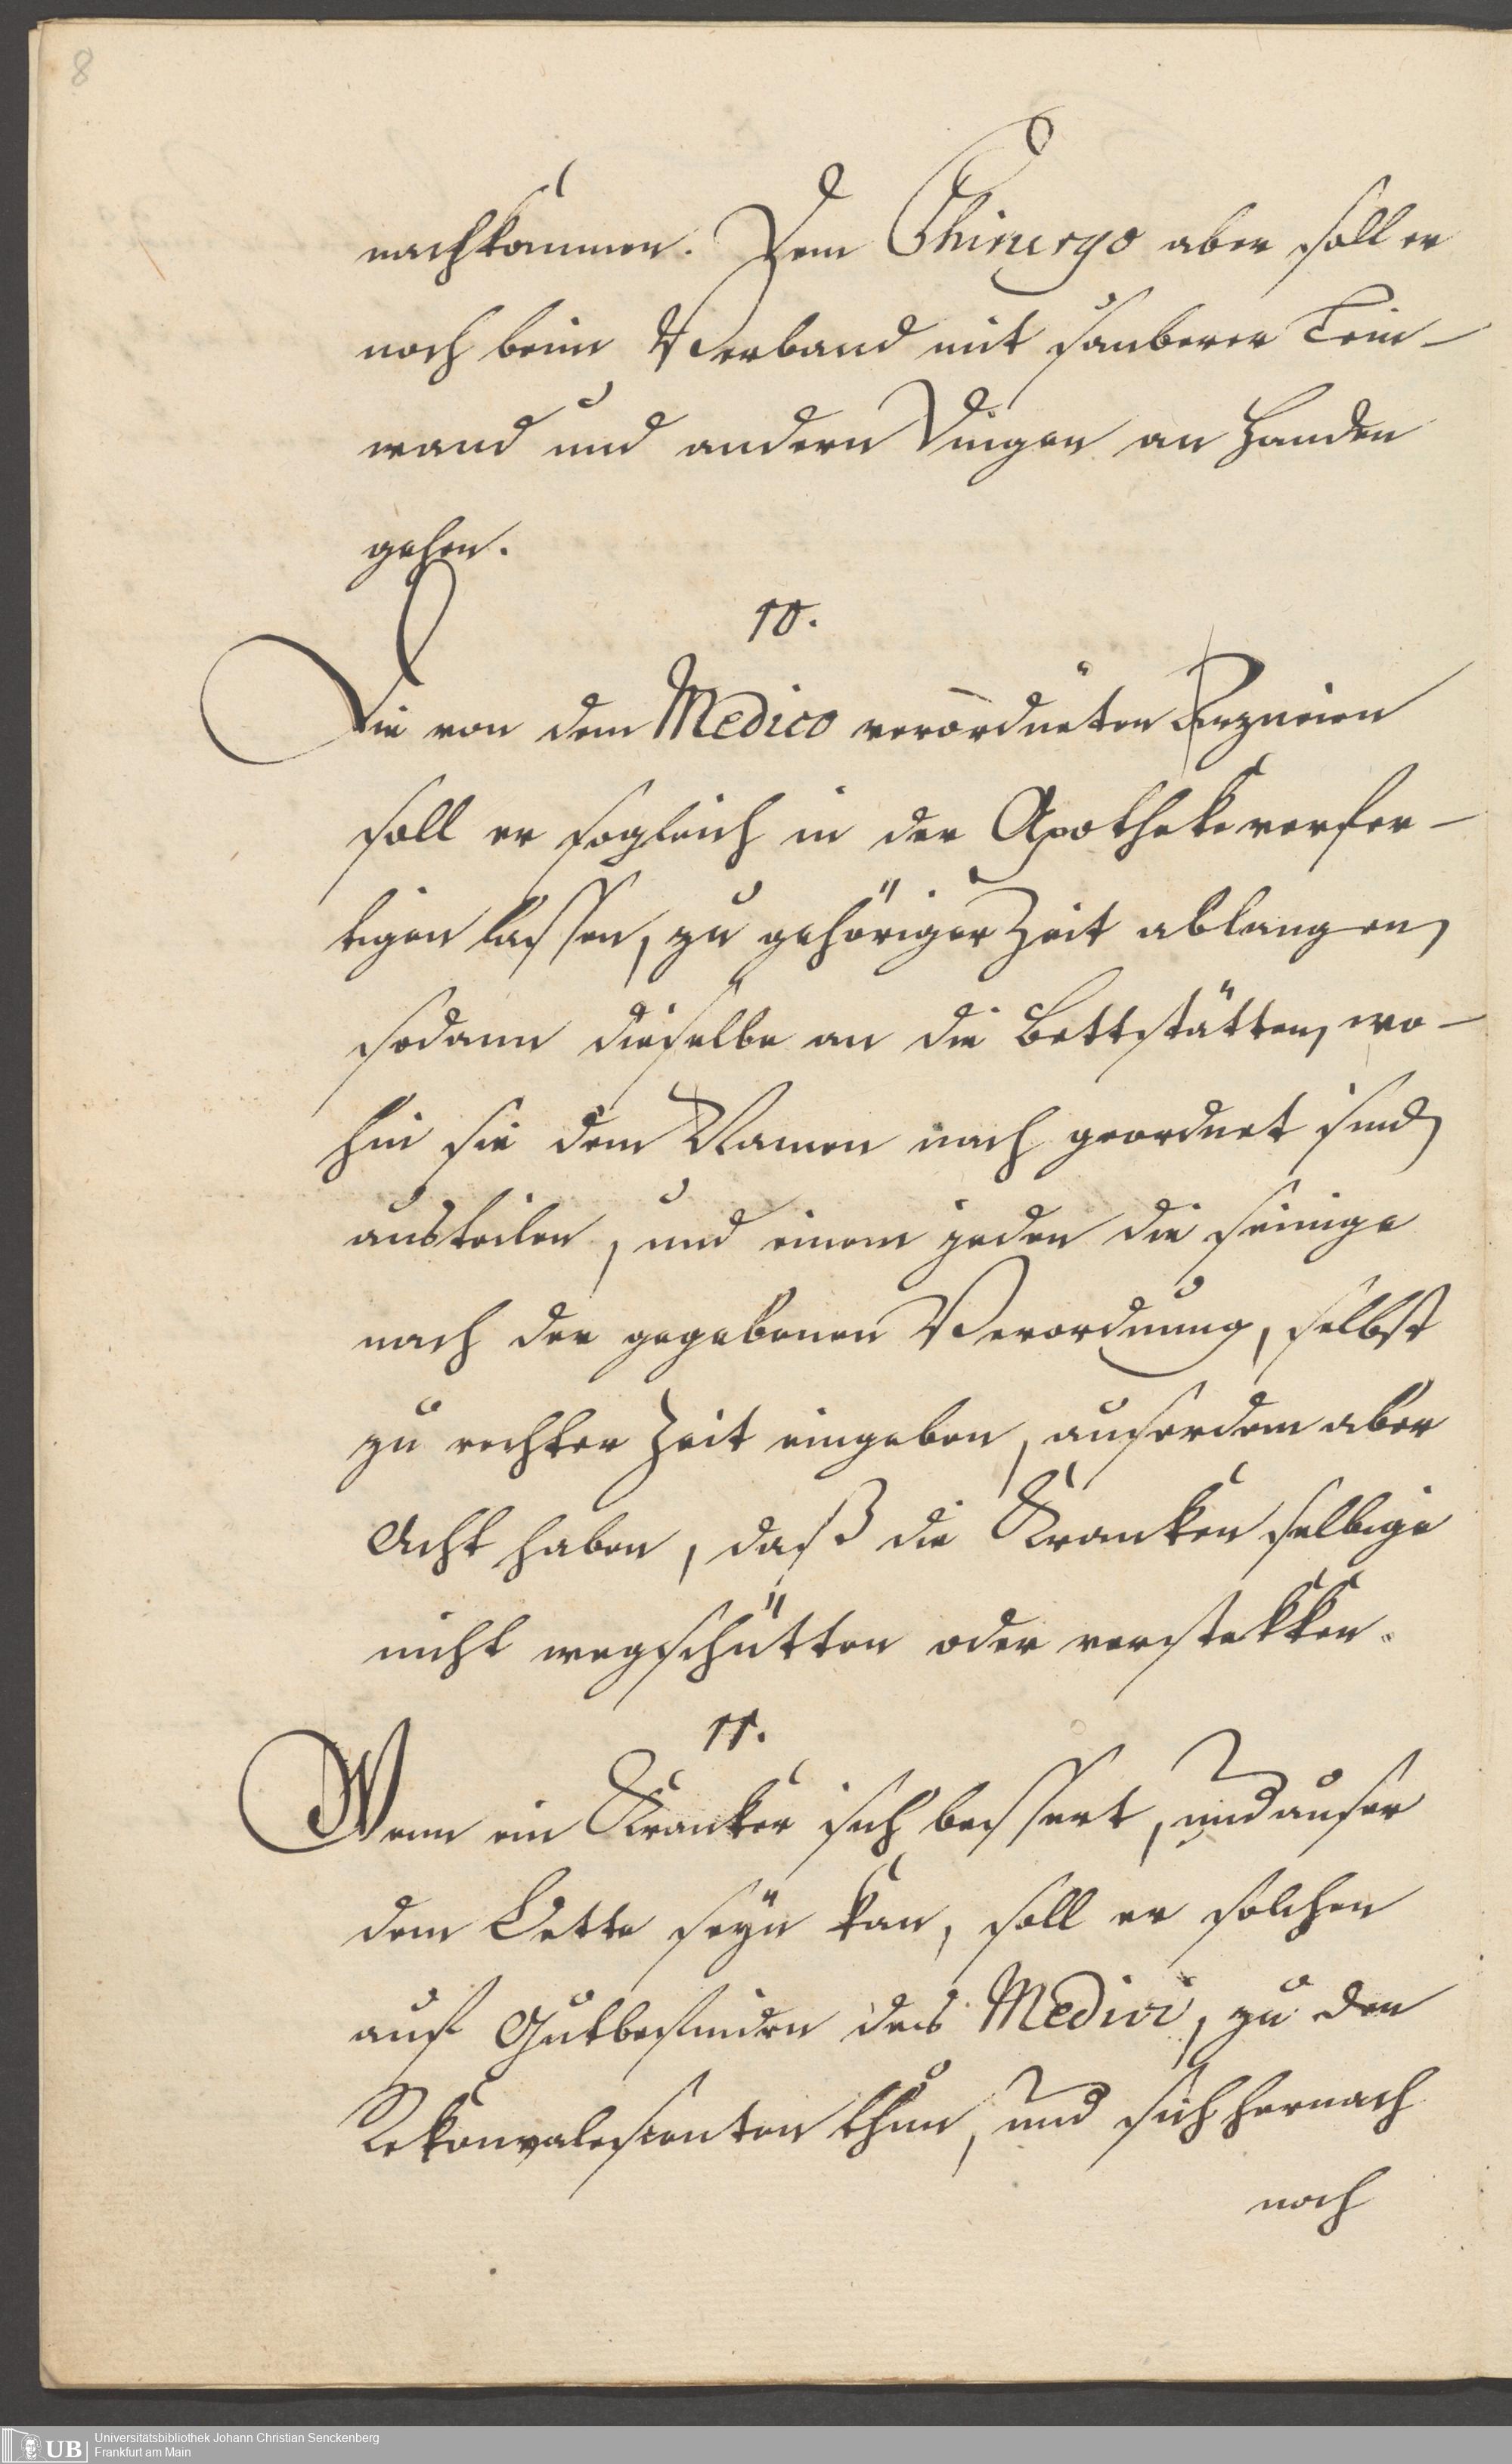 8
nachkommen. Dem Chirurgo aber soll er
noch beim Verband mit sauberer Lein-
wand und andern Dingen an Handen
gehen.
10.
Die von dem Medico verordneten Arzneien
soll er sogleich in der Apotheke verfer-
tigen lassen, zu gehöriger Zeit ablangen,
sodann dieselbe an die Bettstätten, wo-
hin sie dem Namen nach geordnet sind,
austeilen, und einem jeden die seinige
nach der gegebenen Verordnung, selbst
zu rechter Zeit eingeben, auserdem aber
Acht haben, daß die Kranken selbige
nicht wegschütten oder verstekken.
11.
Wenn ein Kranker sich bessert, und auser
dem Bette seyn kan, soll er solchen
auf Gutbefinden des Medici, zu den
Rekonvalescenten thun, und sich hernach
noch
UB Universitätsbibliothek Johann Christian Senckenberg
Frankfurt am Main